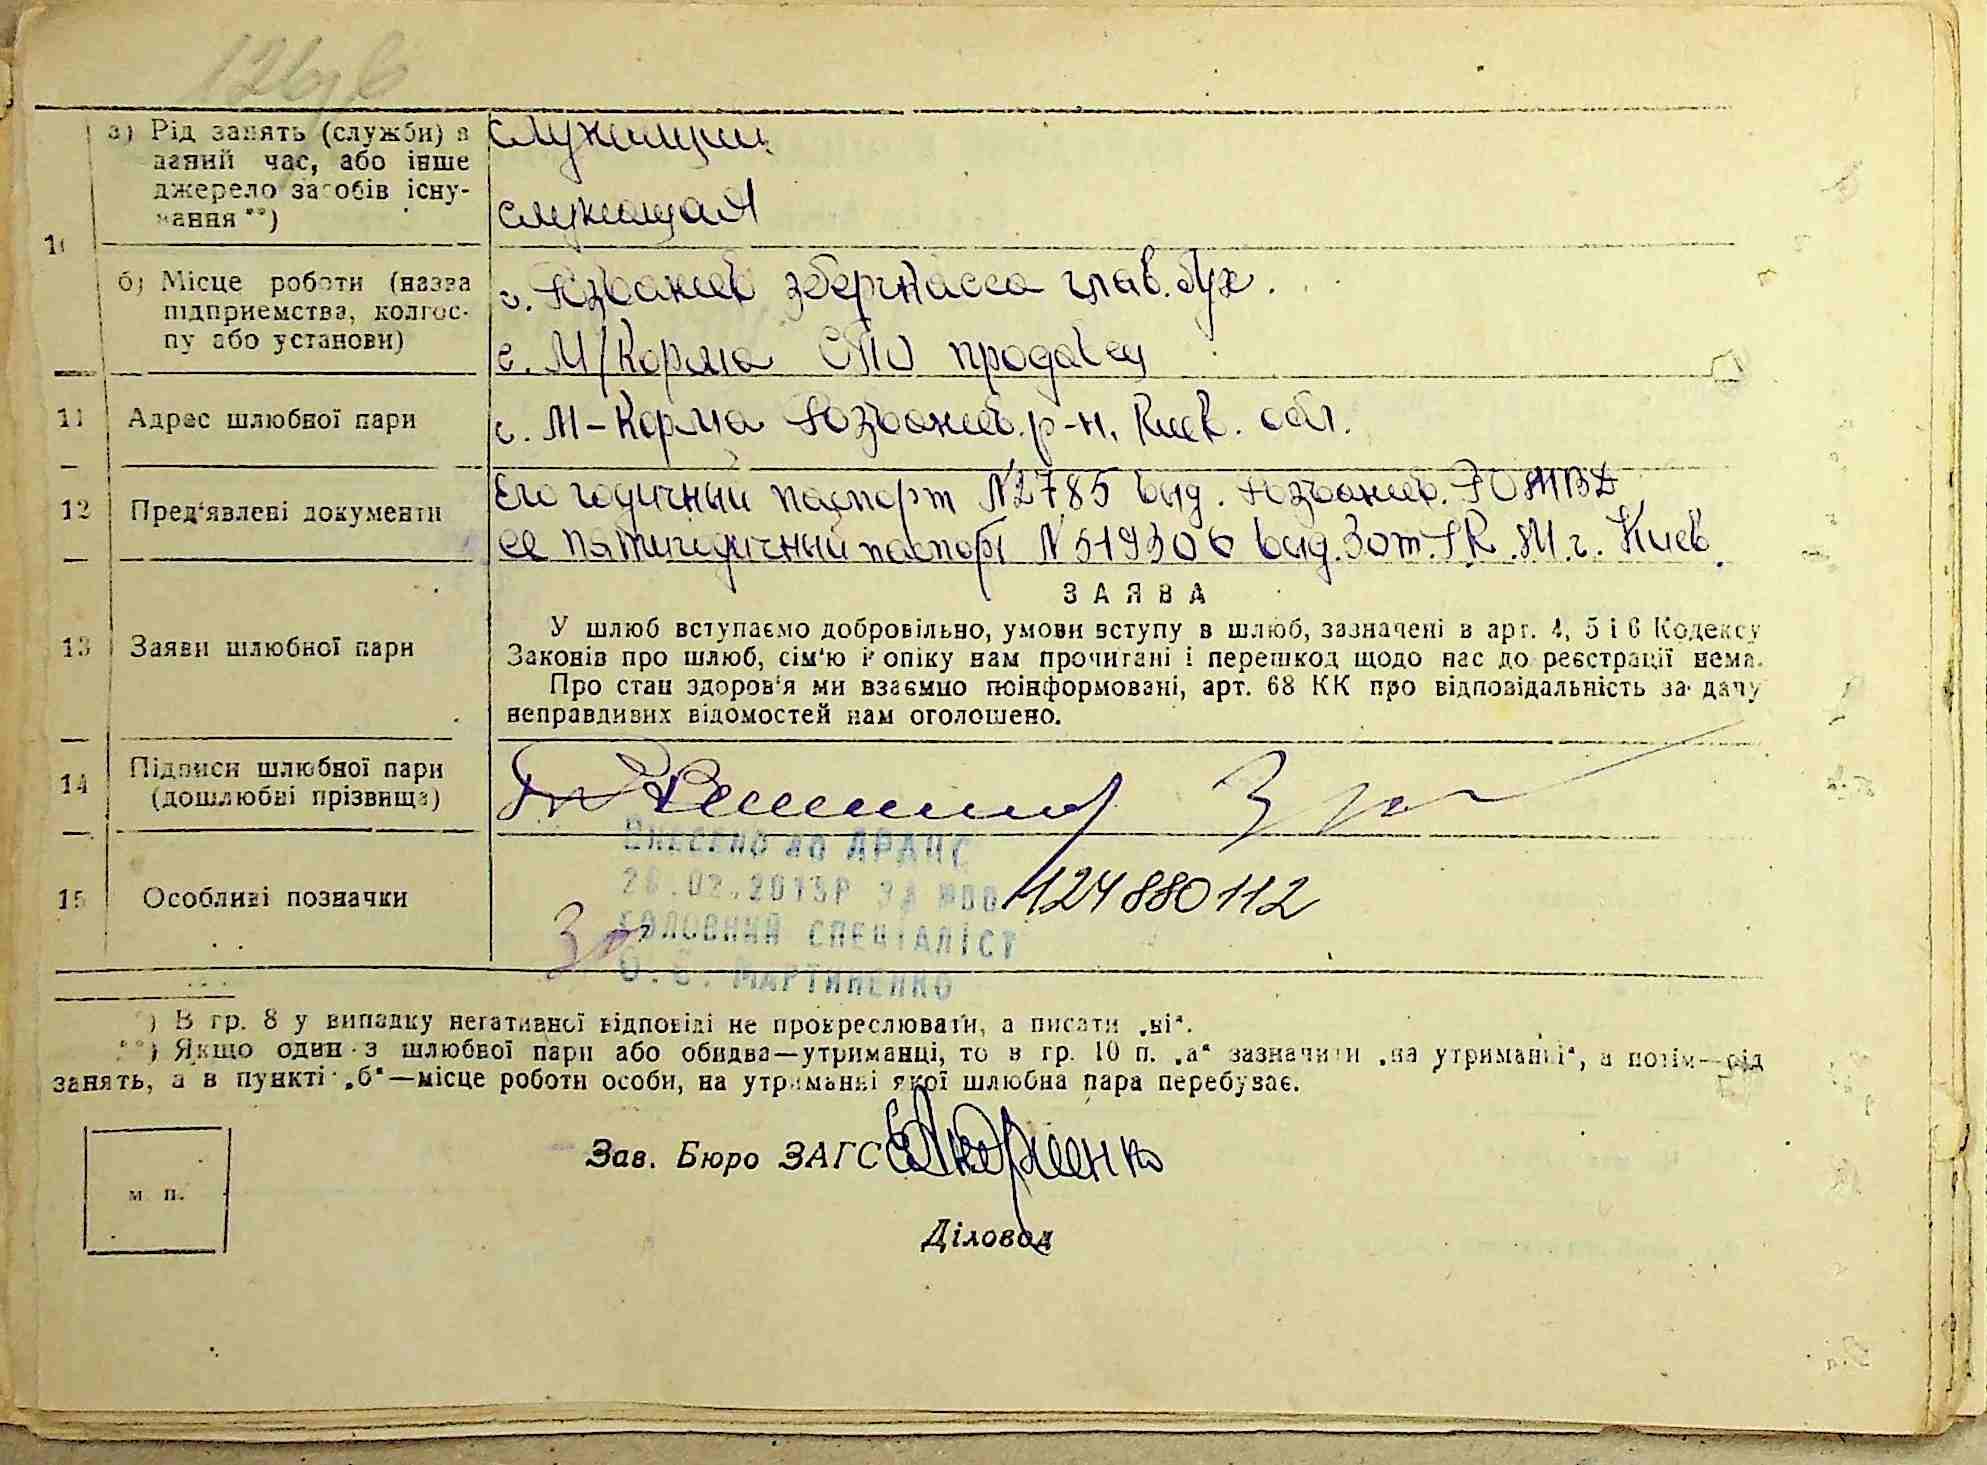 126
а) Рід занять (служби) в
даний час, або інше
джерело засобів існу-
вання **)
служащий
служащая
10
б) Місце роботи (назва
підприємства, колгос-
пу або установи)
с. зберкасса глав. бух.
с. М/Корма продавец
11 Адрес шлюбної пари
с. М-Корма р-н, Киев. обл.
12 Пред'явлені документи
Его годичный паспорт №2785 выд.
ее пятигодичный паспорт №519306 выд. 3 от. Р.К.М. г. Киев.
ЗАЯВА
13 Заяви шлюбної пари
У шлюб вступаємо добровільно, умови вступу в шлюб, зазначені в арт. 4, 5 і 6 Кодексу
Законів про шлюб, сім'ю і опіку нам прочитані і перешкод щодо нас до реєстрації нема.
Про стан здоров'я ми взаємно поінформовані, арт. 68 КК про відповідальність за дачу
неправдивих відомостей нам оголошено.
14 Підписи шлюбної пари
(дошлюбні прізвища)
15 Особливі позначки
ВНЕСЕНО ДО ДРАЦС
26.02.2013Р ЗА №00 124880112
ГОЛОВНИЙ СПЕЦІАЛІСТ
О.С. МАРТИНЕНКО
*) В гр. 8 у випадку негативної відповіді не прокреслювати, а писати „ні“.
**) Якщо один з шлюбної пари або обидва—утриманці, то в гр. 10 п. „а“ зазначити „на утриманні“, а потім—рід
занять, а в пункті „б“—місце роботи особи, на утриманні якої шлюбна пара перебуває.
Зав. Бюро ЗАГС
м п.
Діловод